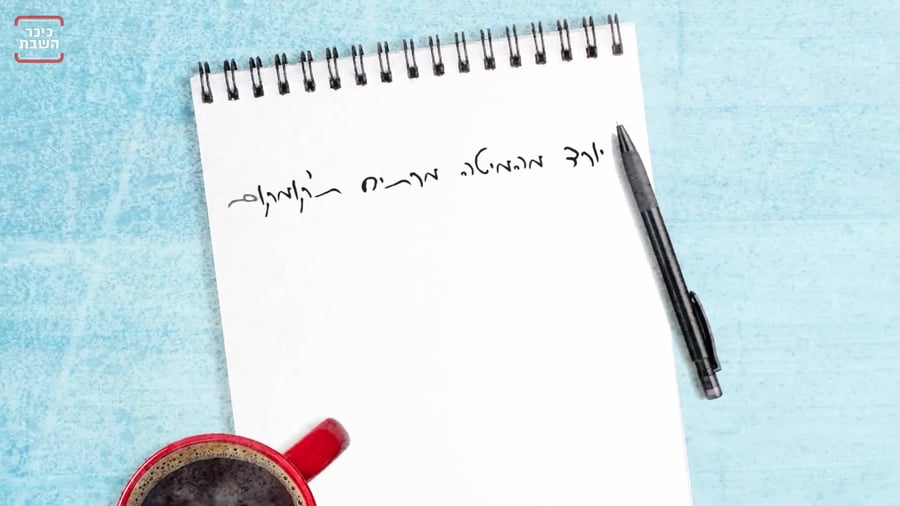 כיכר
השבת
יורד מהמיטה מרתיח ת'קומקום